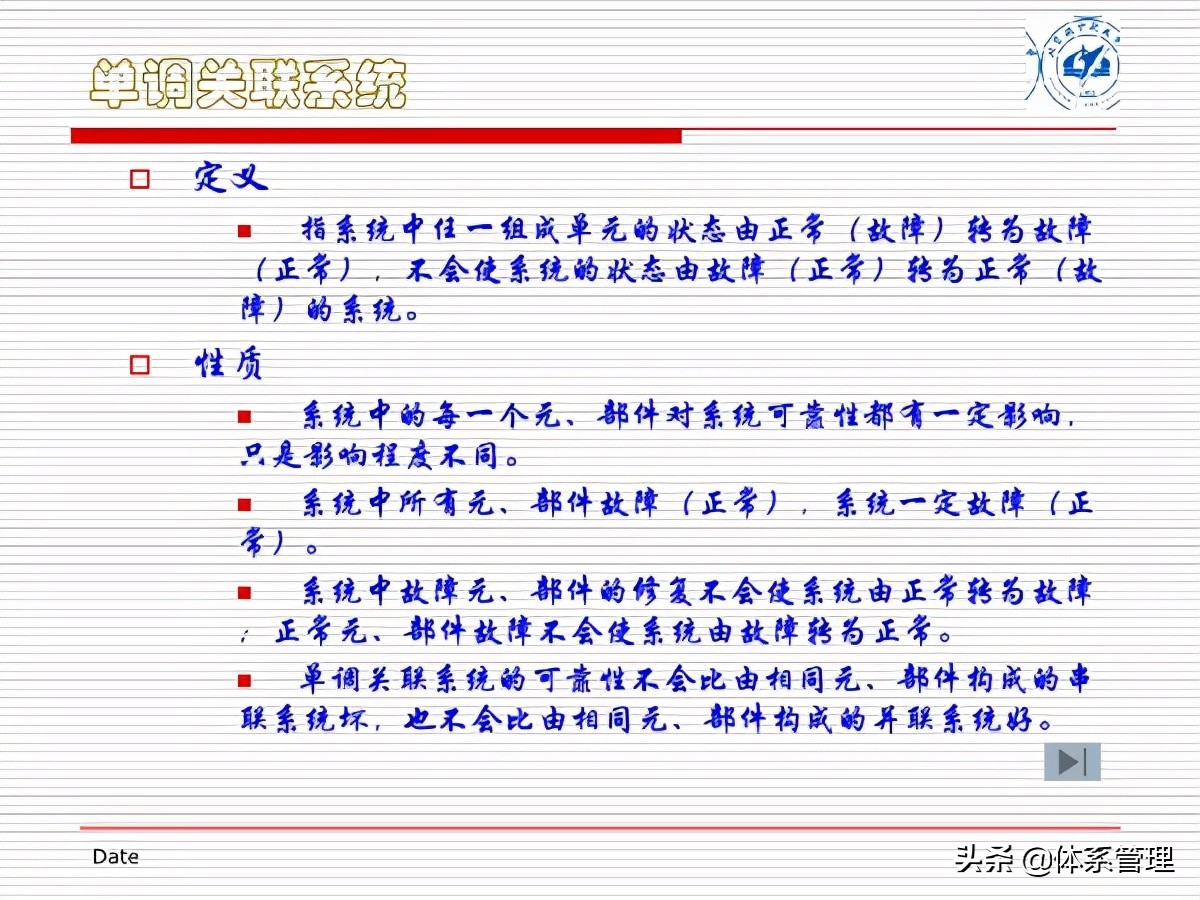 单调关联系统
定义
指系统中任一组成单元的状态由正常（故障）转为故障
（正常），不会使系统的状态由故障（正常）转为正常（故
障）的系统。
性质
系统中的每一个元、部件对系统可靠性都有一定影响，
只是影响程度不同。
系统中所有元、部件故障（正常），系统一定故障（正
常）。
系统中故障元、部件的修复不会使系统由正常转为故障
；正常元、部件故障不会使系统由故障转为正常。
单调关联系统的可靠性不会比由相同元、部件构成的串
联系统坏，也不会比由相同元、部件构成的并联系统好。
Date
头条 @体系管理